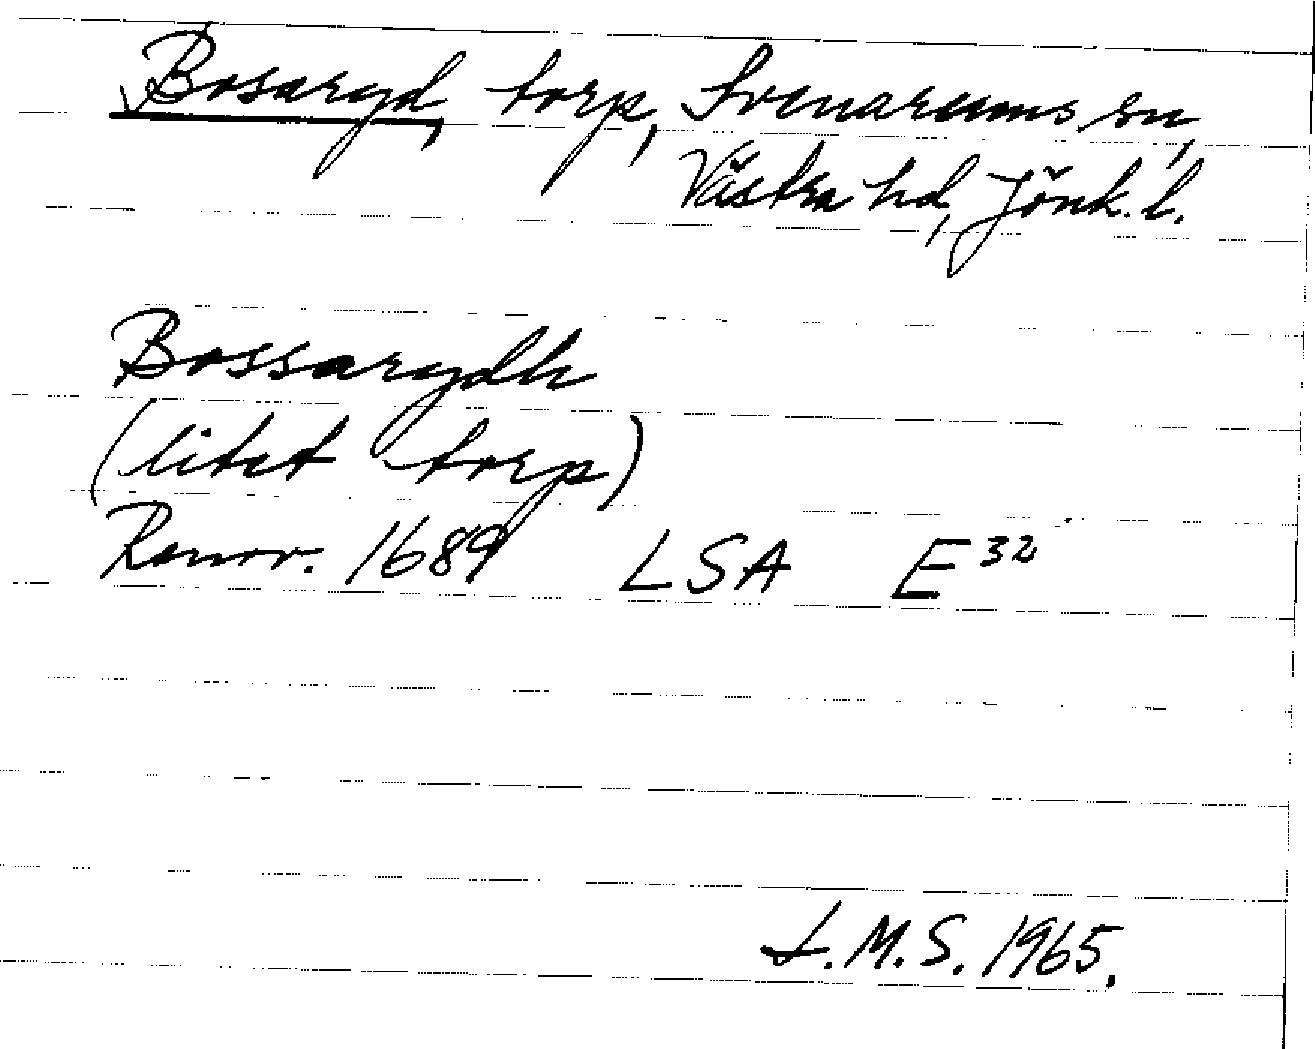 Bosaryd, torp, Svenarums sn,
Västra hd, Jönk. l.
Bossarydh
(litet torp)
Renov. 1689 LSA E 32
L.M.S. 1965.